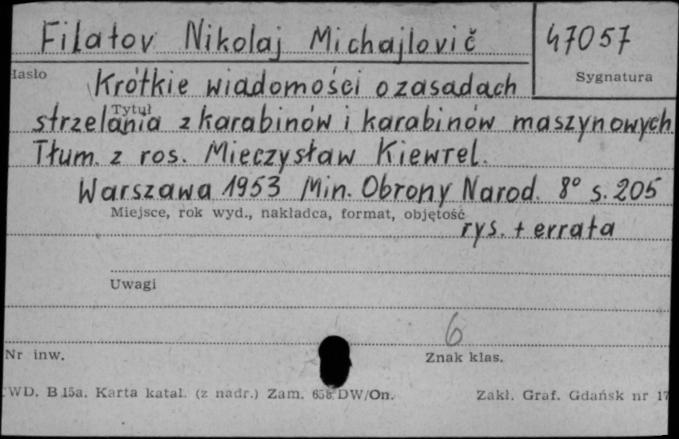 Filatov Nikolaj Michajlovič
47057
Hasło
Sygnatura
Krótkie wiadomości o zasadach
Tytuł
strzelania z karabinów i karabinów maszynowych
Tłum. z ros. Mieczysław Kiewrel.
Warszawa 1953 Min. Obrony Narod. 8° s. 205
Miejsce, rok wyd., nakładca, format, objętość
rys. + errata
Uwagi
6
Nr inw.
Znak klas.
WD. B 15a. Karta katal. (z nadr.) Zam. 658/DW/On.
Zakł. Graf. Gdańsk nr 17